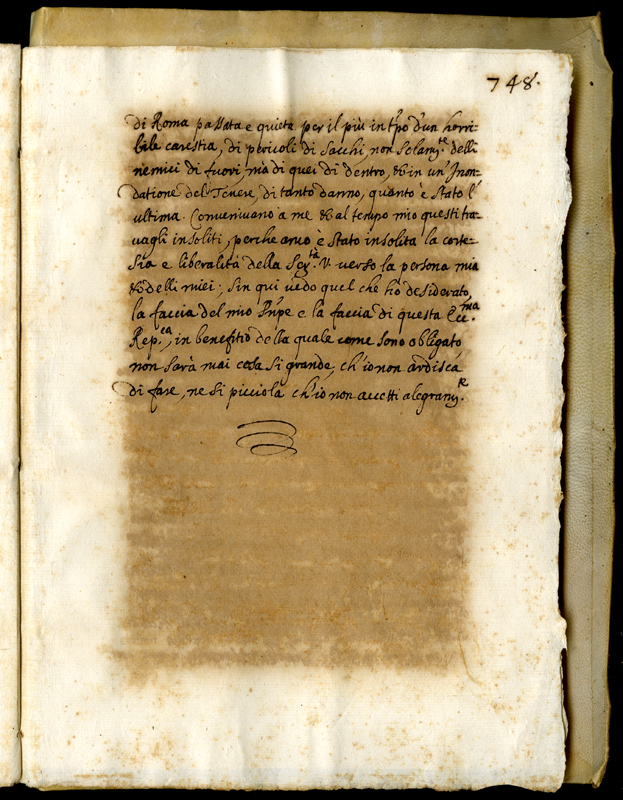 748.
di Roma passata e quieta per il più in tp̃o d'un horri-
bile carestia, di pericoli di Sacchi, non Solam.te delli
nemici di fuori, mà di quei di dentro, & in un' Jnon-
datione del Tevere, di tanto danno, quanto è stato l'
ultima. Convenivano a me & al tempo mio questi tra-
vagli insoliti, perche anco è stato insolita la corte-
sia e liberalità della Ser.tà V. verso la persona mia
& delli miei; Sin qui vedo quel che hò desiderato,
la faccia del mio Pñpe e la faccia di questa Ecc.ma
Rep.ca, in benefitio della quale come sono obligato
non sarà mai cosa si grande, ch'io non ardisca
di fare, ne si picciola ch'io non accetti alegram.te